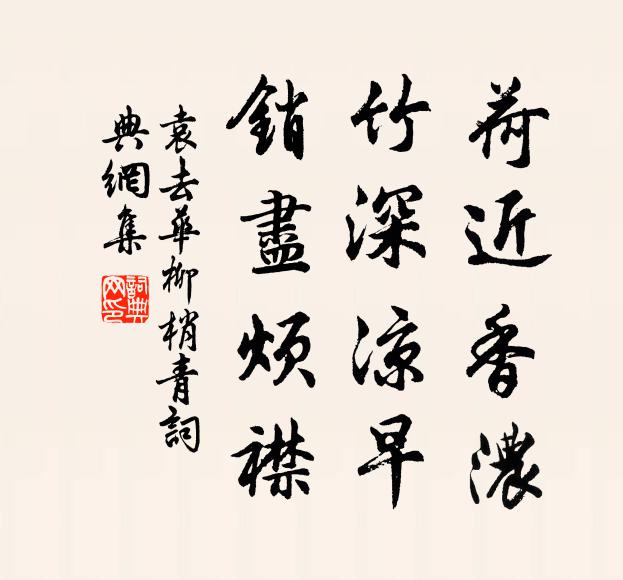 荷近香濃
竹深涼早
銷盡煩襟
袁去華柳梢青詞
典網集
詞典
网印